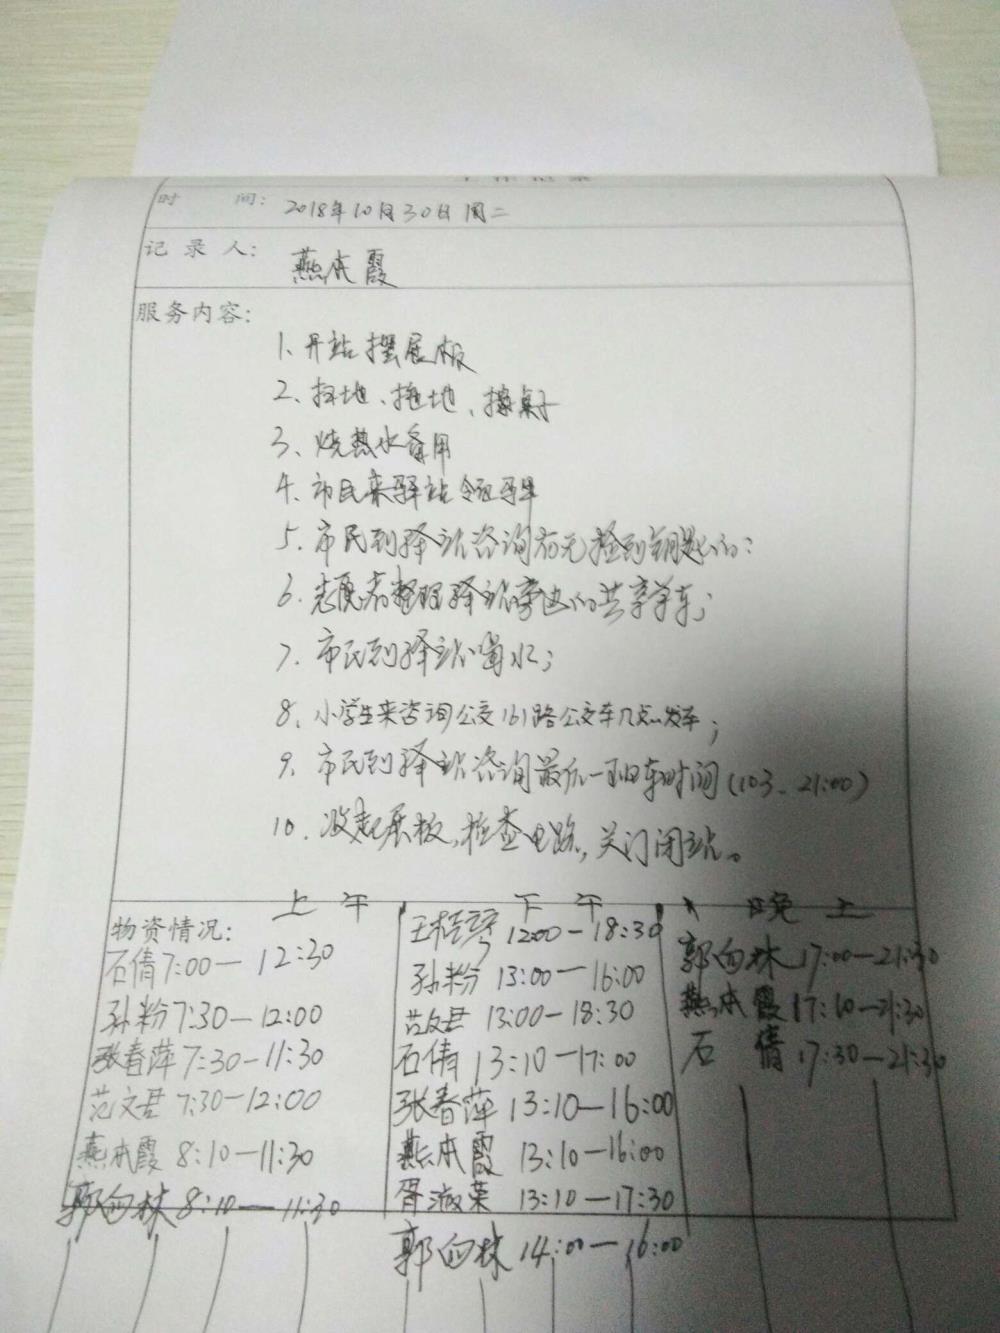 工作记录
时 间: 2018年10月30日 周二
记录人: 燕本霞
服务内容:
1、开站摆展板
2、扫地、拖地、擦桌子
3、烧热水备用
4、市民来驿站领
5、市民到驿站咨询有无捡到钥匙的;
6、志愿者整理驿站旁边的共享单车;
7、市民到驿站喝水;
8、小学生来咨询公交161路公交车几点发车;
9、市民到驿站咨询最后一班车时间(103、21:00)
10、收起展板,检查电路,关门闭站。
上 午 下 午 晚 上
物资情况:
石倩 7:00—12:30
孙粉 7:30—12:00
张春萍 7:30—11:30
范文君 7:30—12:00
燕本霞 8:10—11:30
郭向林 8:10—11:30
王桂琴 12:00—18:30
孙粉 13:00—16:00
范文君 13:00—18:30
石倩 13:10—17:00
张春萍 13:10—16:00
燕本霞 13:10—16:00
胥淑荣 13:10—17:30
郭向林 14:00—16:00
郭向林 17:00—21:30
燕本霞 17:10—21:30
石 倩 17:30—21:30